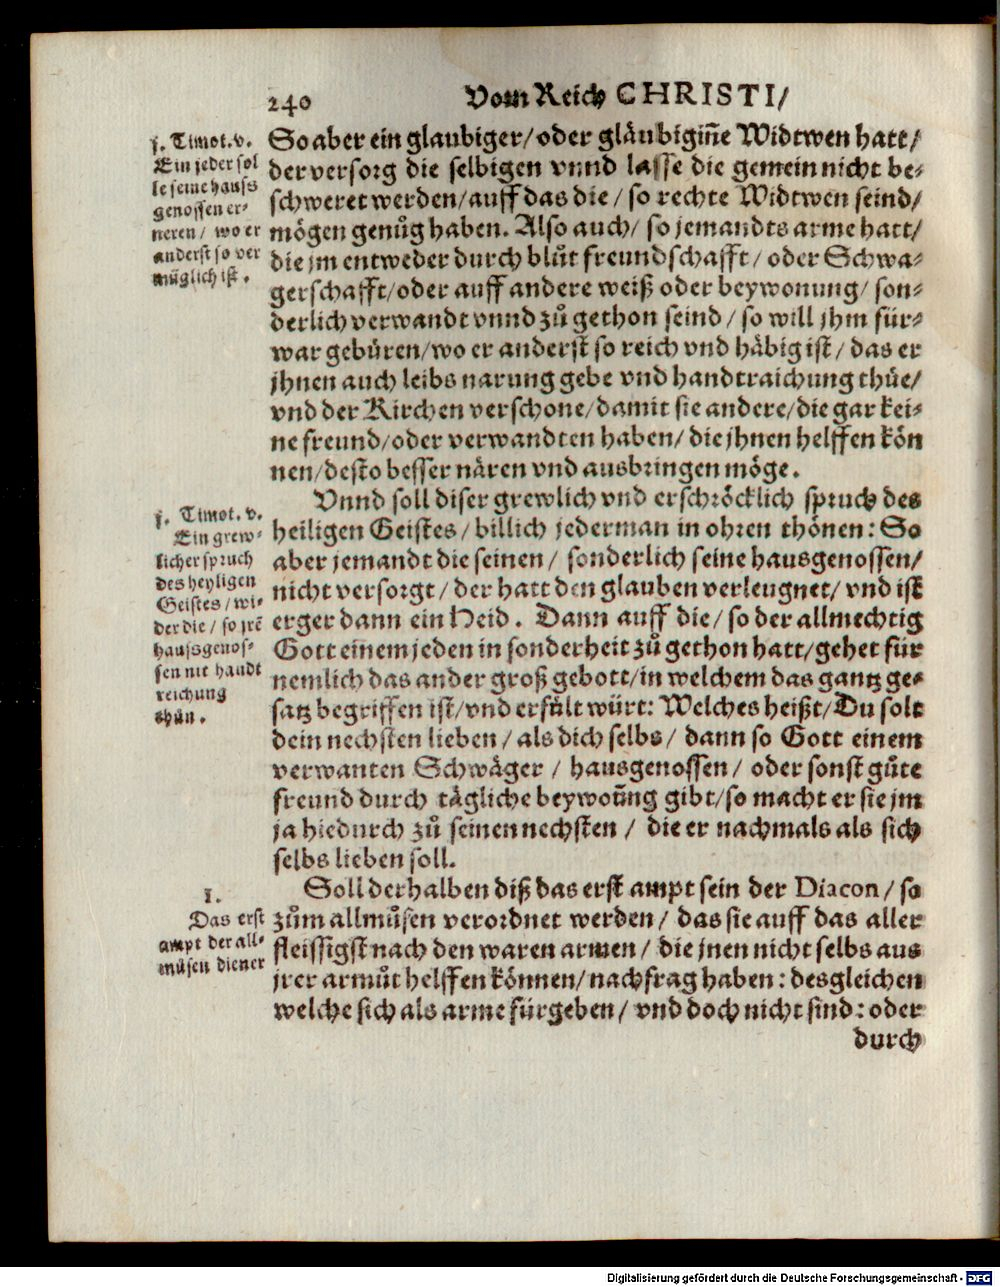 240 Vom Reich CHRISTI/
j. Timot. v.
Ein jeder sol
le seine hauss
genossen er-
neren / wo er
anderst so ver
müglich ist.
So aber ein glaubiger/oder gläubigiñe Widtwen hatt/
der versorg die selbigen vnnd lasse die gemein nicht be-
schweret werden/auff das die / so rechte Widtwen seind/
mögen genůg haben. Also auch/ so jemandts arme hatt/
die jm entweder durch blůt freundschafft / oder Schwa-
gerschafft/oder auff andere weiß oder beywonung/ son-
derlich verwandt vnnd zů gethon seind / so will jhm für-
war gebüren/wo er anderst so reich vnd häbig ist / das er
jhnen auch leibs narung gebe vnd handtraichung thüe/
vnd der Kirchen verschone/damit sie andere/die gar kei-
ne freund/oder verwandten haben/ die jhnen helffen kön
nen/desto besser nären vnd ausbringen möge.
j. Timot. v.
Ein grew-
licher spruch
des heyligen
Geistes / wi-
der die / so jrẽ
haussgenos-
sen nit handt
reichung
thůn.
Vnnd soll diser grewlich vnd erschröcklich spruch des
heiligen Geistes / billich jederman in ohren thönen: So
aber jemandt die seinen / sonderlich seine hausgenossen/
nicht versorgt / der hatt den glauben verleugnet/ vnd ist
erger dann ein Heid. Dann auff die / so der allmechtig
Gott einem jeden in sonderheit zů gethon hatt/gehet für
nemlich das ander groß gebott/in welchem das gantz ge-
satz begriffen ist/vnd erfült würt: Welches heißt/Du solt
dein nechsten lieben / als dich selbs / dann so Gott einem
verwanten Schwäger / hausgenossen / oder sonst gůte
freund durch tägliche beywoũng gibt/so macht er sie jm
ja hiedurch zů seinen nechsten / die er nachmals als sich
selbs lieben soll.
1.
Das erst
ampt der all-
můsen diener
Soll derhalben diß das erst ampt sein der Diacon / so
zům allmůsen verordnet werden / das sie auff das aller
fleissigst nach den waren armen / die jnen nicht selbs aus
jrer armůt helffen können/nachfrag haben: desgleichen
welche sich als arme fürgeben / vnd doch nicht sind: oder
durch
Digitalisierung gefördert durch die Deutsche Forschungsgemeinschaft - DFG